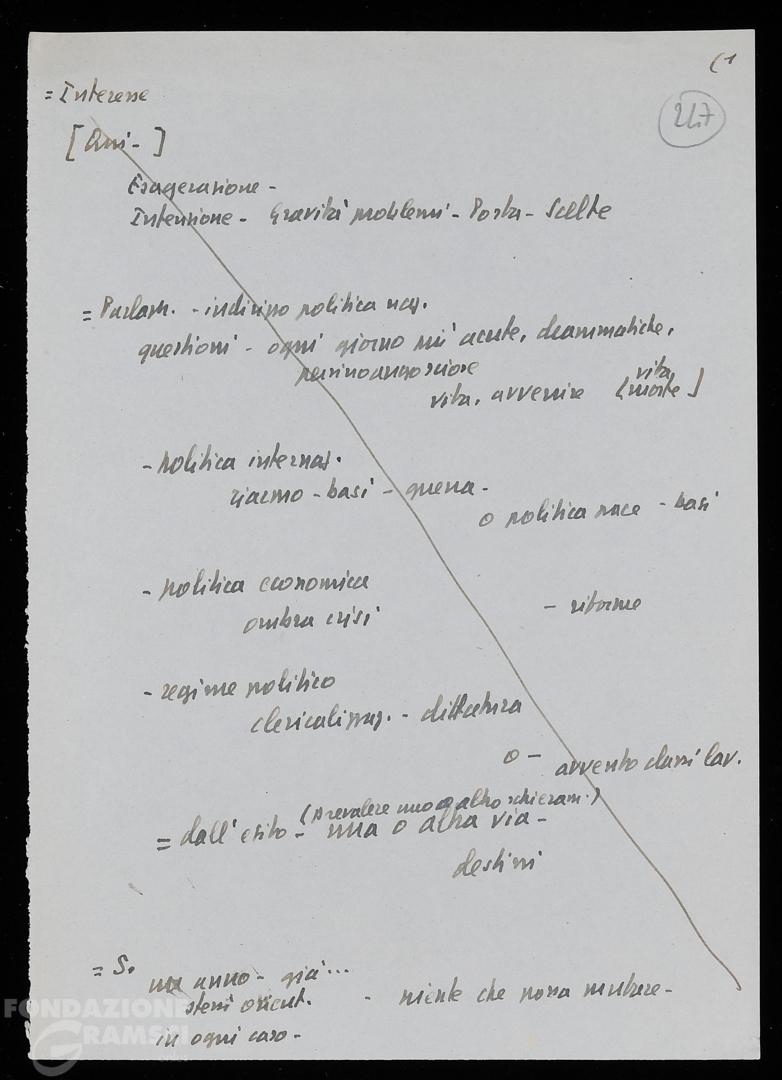 (1
247
= Interesse
[Qui - ]
Esagerazione -
Intenzione - Gravità problemi - Posta - Scelte
= Parlam. - indirizzo politica naz.
questioni - ogni giorno più acute, drammatiche,
persino angosciose
vita, avvenire [vita, morte]
- politica internaz.
riarmo - basi - guerra -
o politica pace - basi
- politica economica
ombra crisi - riforme
- regime politico
clericalizzaz. - dittatura
o - avvento classi lav.
(prevalere uno o altro schieram.)
= dall'esito - una o altra via -
destini
= S.
un anno - già...
stessi orient. - niente che possa mutare -
in ogni caso -
FONDAZIONE
GRAMSCI
onlus